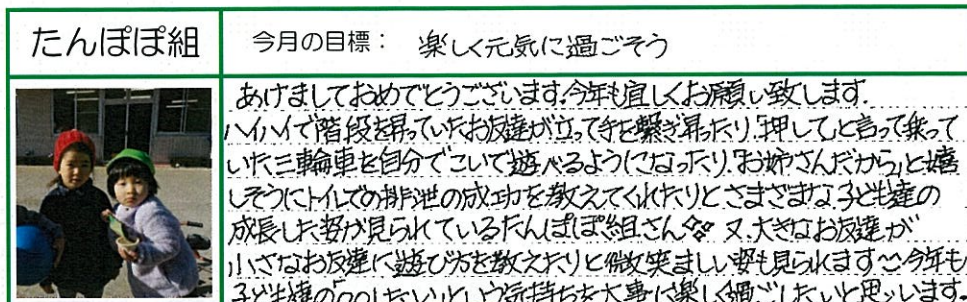 たんぽぽ組
今月の目標： 楽しく元気に過ごそう
あけましておめでとうございます。今年も宜しくお願い致します。
ハイハイで階段を昇っていたお友達が立って手を繋ぎ昇ったり、「押して」と言って乗って
いた三輪車を自分でこいで遊べるようになったり、「お姉さんだから」と嬉
しそうにトイレでの排泄の成功を教えてくれたりとさまざまな子ども達の
成長した姿が見られているたんぽぽ組さん 又、大きなお友達が
小さなお友達に遊び方を教えたりと微笑ましい姿も見られます 今年も
子ども達の「○○したい」という気持ちを大事に楽しく過ごしたいと思います。